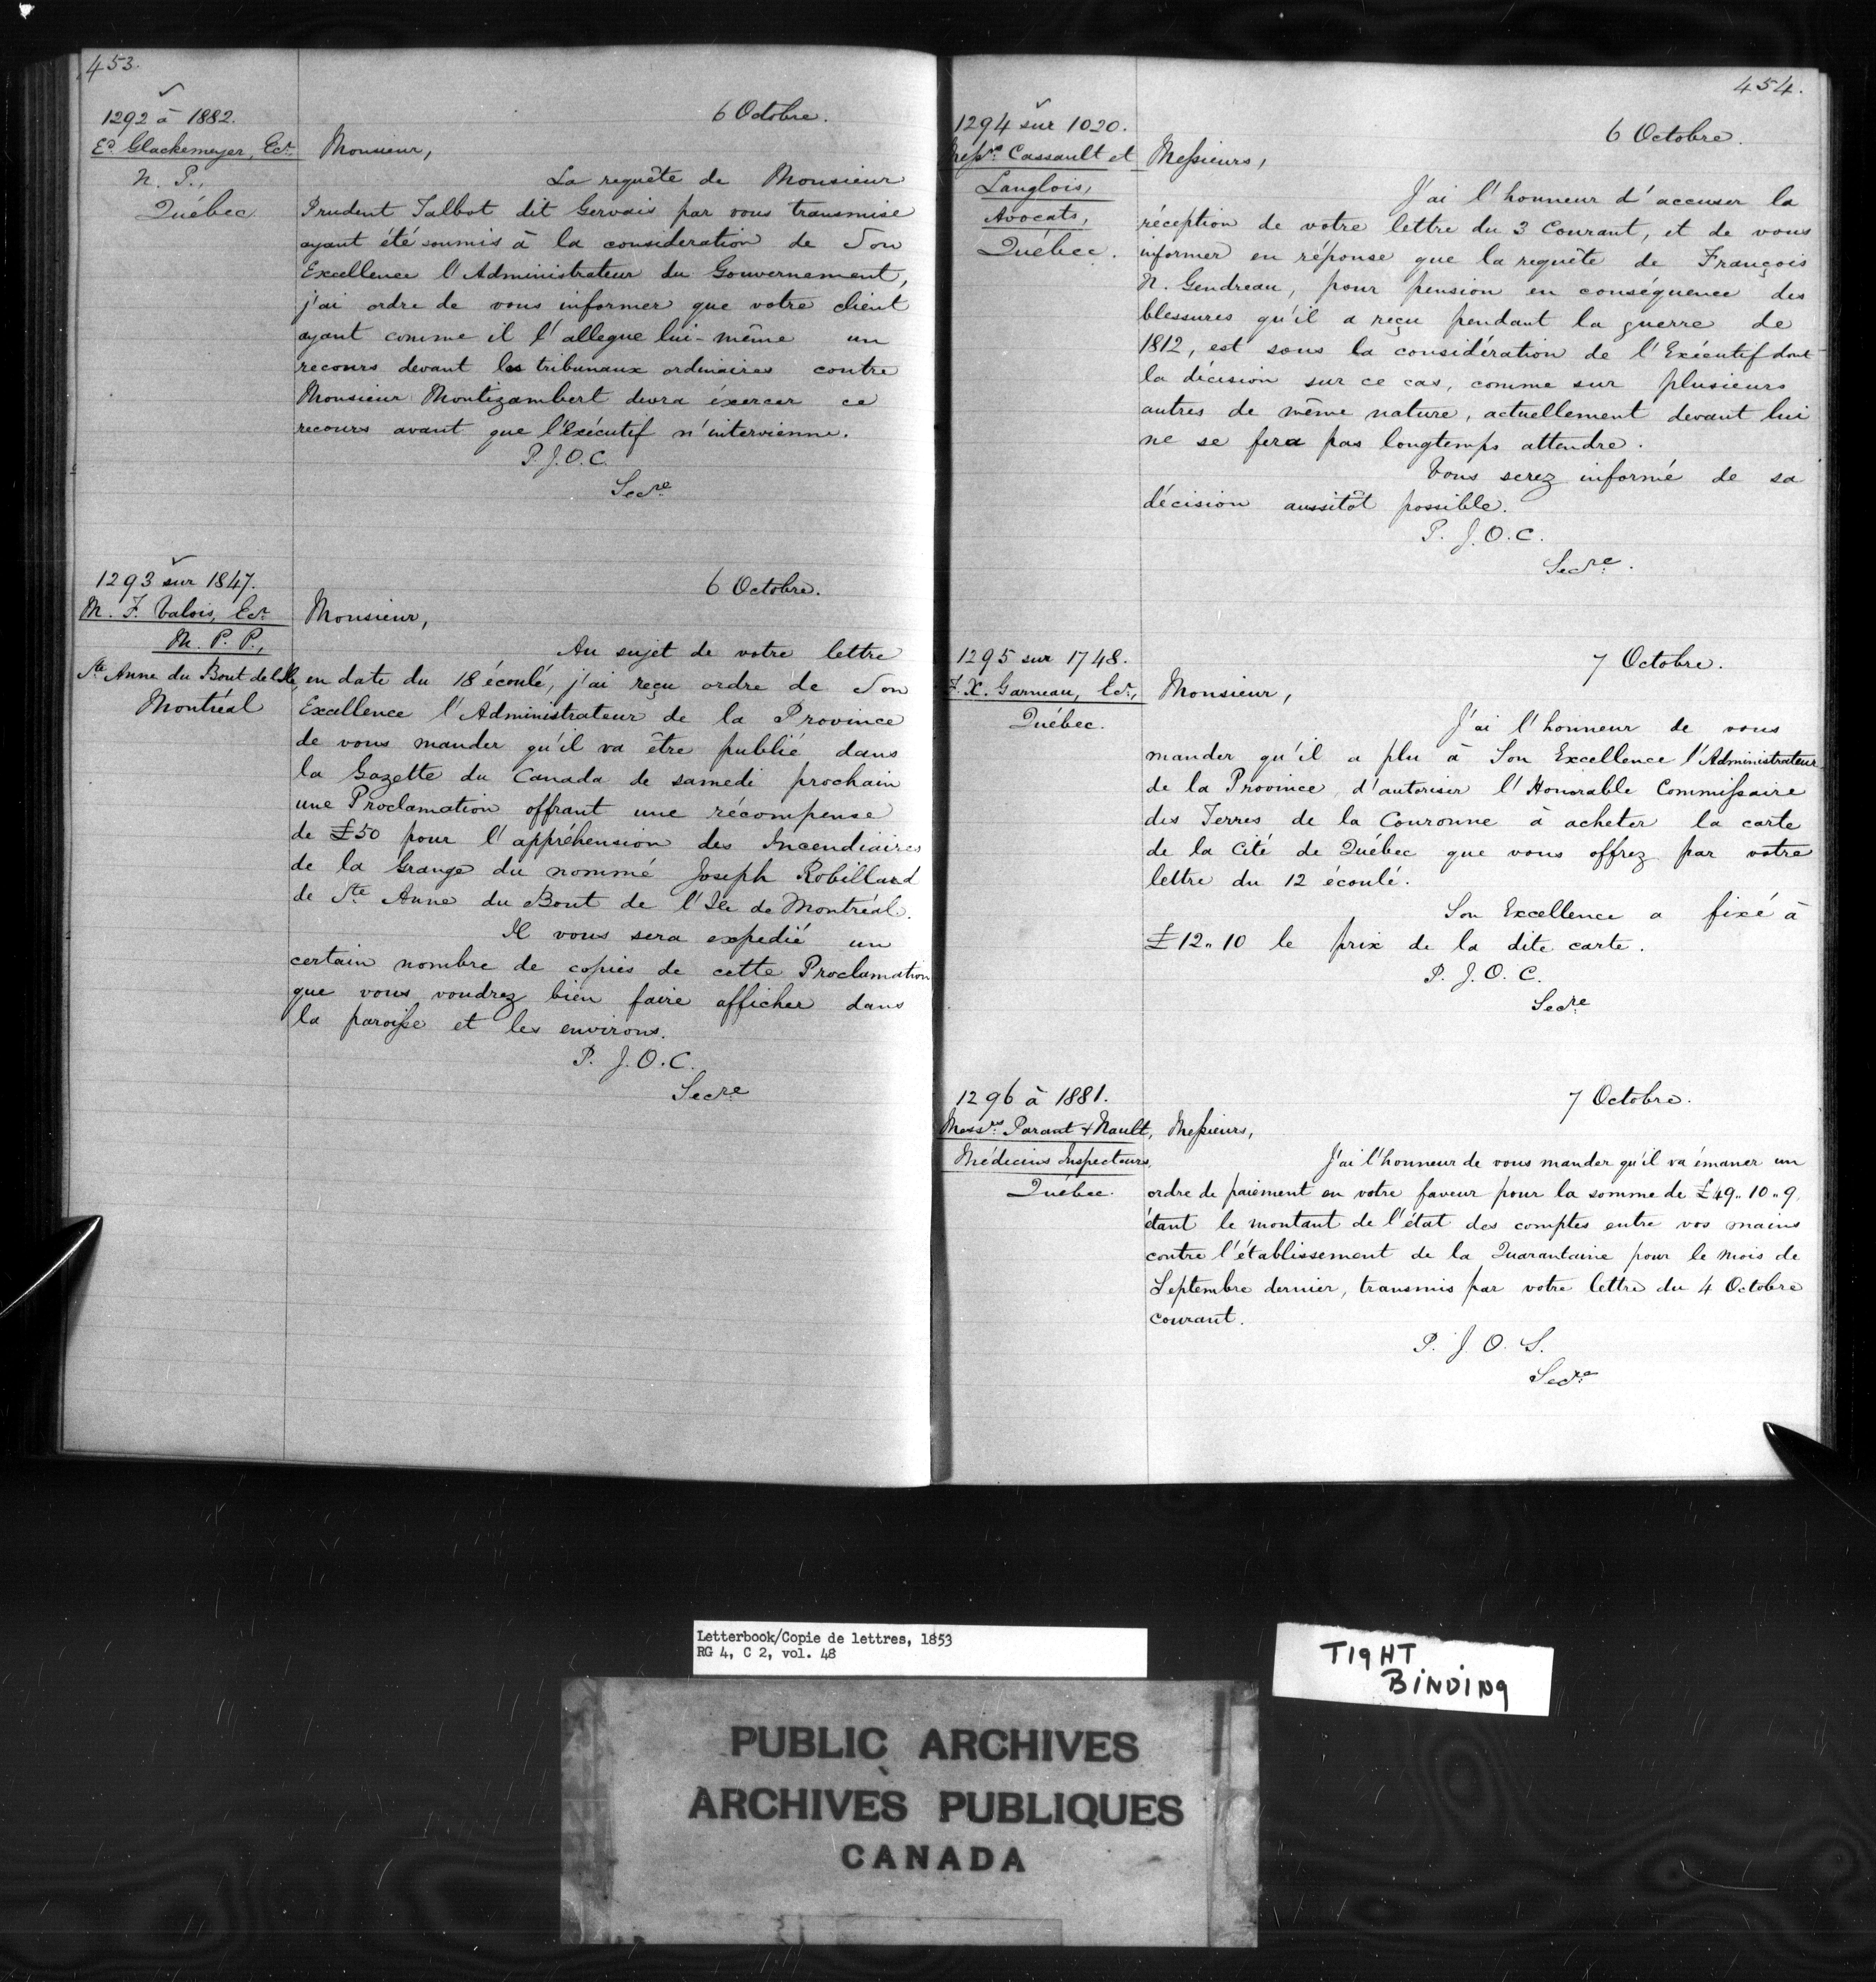 453.
1292 à 1882.
Ed. Glackemeyer, Ecr.
N. P.,
Québec
6 Octobre.
Monsieur,
La requête de Monsieur
Prudent Talbot dit Gervais par vous transmise
ayant été soumis à la consideration de Son
Excellence l'Administrateur du Gouvernement,
j'ai ordre de vous informer que votre client
ayant comme il l'allegue lui-même un
recours devant les tribunaux ordinaires contre
Monsieur Montizambert devra éxercer ce
recours avant que l'Exécutif n'intervienne.
P. J. O. C.
Secre
1293 sur 1847.
M. F. Valois, Ecr
M. P. P.,
Ste Anne du Bout de l'Ile,
Montréal
6 Octobre.
Monsieur,
Au sujet de votre lettre
en date du 18 écoulé, j'ai reçu ordre de Son
Excellence l'Administrateur de la Province
de vous mander qu'il va être publié dans
la Gazette du Canada de samedi prochain
une Proclamation offrant une récompense
de £50 pour l'appréhension des Incendiaires
de la Grange du nommé Joseph Robillard
de Ste Anne du Bout de l'Ile de Montréal.
Il vous sera expedié un
certain nombre de copies de cette Proclamation
que vous voudrez bien faire afficher dans
la paroisse et les environs.
P. J. O. C.
Secre
454.
1294 sur 1020.
Messrs Cassault et
Langlois,
Avocats,
Québec.
6 Octobre.
Messieurs,
J'ai l'honneur d'accuser la
réception de votre lettre du 3 Courant, et de vous
informer en réponse que la requête de François
N. Gendreau, pour pension en conséquence des
blessures qu'il a reçu pendant la guerre de
1812, est sous la considération de l'Exécutif dont
la décision sur ce cas, comme sur plusieurs
autres de même nature, actuellement devant lui
ne se fera pas longtemps attendre.
Vous serez informé de sa
décision aussitôt possible.
P. J. O. C.
Secre.
1295 sur 1748.
F. X. Garneau, Ecr.,
Québec.
7 Octobre.
Monsieur,
J'ai l'honneur de vous
mander qu'il a plu à Son Excellence l'Administrateur
de la Province, d'autoriser l'Honorable Commissaire
des Terres de la Couronne à acheter la carte
de la Cité de Québec que vous offrez par votre
lettre du 12 écoulé.
Son Excellence a fixé à
£12„10 le prix de la dite carte.
P. J. O. C.
Secre
1296 à 1881.
Messrs Parant & Nault,
Médecins Inspecteurs,
Québec.
7 Octobre.
Messieurs,
J'ai l'honneur de vous mander qu'il va émaner un
ordre de paiement en votre faveur pour la somme de £49„10„9,
étant le montant de l'état des comptes entre vos mains
contre l'établissement de la Quarantaine pour le mois de
Septembre dernier, transmis par votre lettre du 4 Octobre
courant.
P. J. O. S.
Secre
Letterbook/Copie de lettres, 1853
RG 4, C 2, vol. 48
TIGHT
BINDING
PUBLIC ARCHIVES
ARCHIVES PUBLIQUES
CANADA